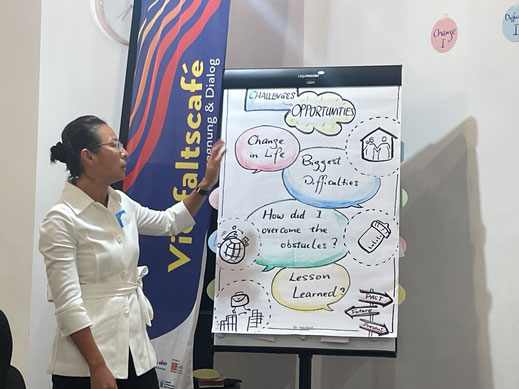 Change
I
Vielfaltscafé
Begegnung & Dialog
Legamaster
CHALLENGES
OPPORTUNITIES
Change
in Life
Biggest
Difficulties
How did I
overcome the
obstacles?
Lesson
Learned?
PAST
Future
Present